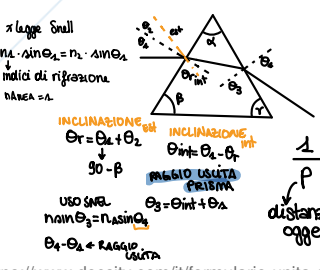 x legge Snell
n1 · sinθ1 = n2 · sinθ2
indici di rifrazione
nAREA = 1
θ2
θ1
est
α
θr int
θ3
θ4
β
γ
INCLINAZIONE est
θr = θ1 + θ2
90 - β
INCLINAZIONE int
θint = θ1 - θr
RAGGIO USCITA
PRISMA
USO SNEL
n sinθ3 = nA sinθ4
θ3 = θint + θ1
θ4 - θ1 ← RAGGIO
USCITA
1
P
distan
ogge